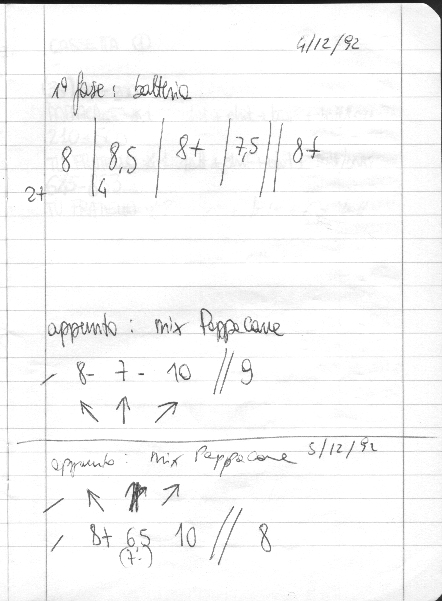 4/12/92
1ª fase: batteria
8 | 8,5 | 8+ | 7,5 || 8+
2+ 4
appunto: mix Pappacane
/ 8- 7- 10 // 9
↖ ↑ ↗
appunto: mix Pappacane 5/12/92
/ ↖ ↑ ↗
/ 8+ 6,5 10 // 8
(7-)